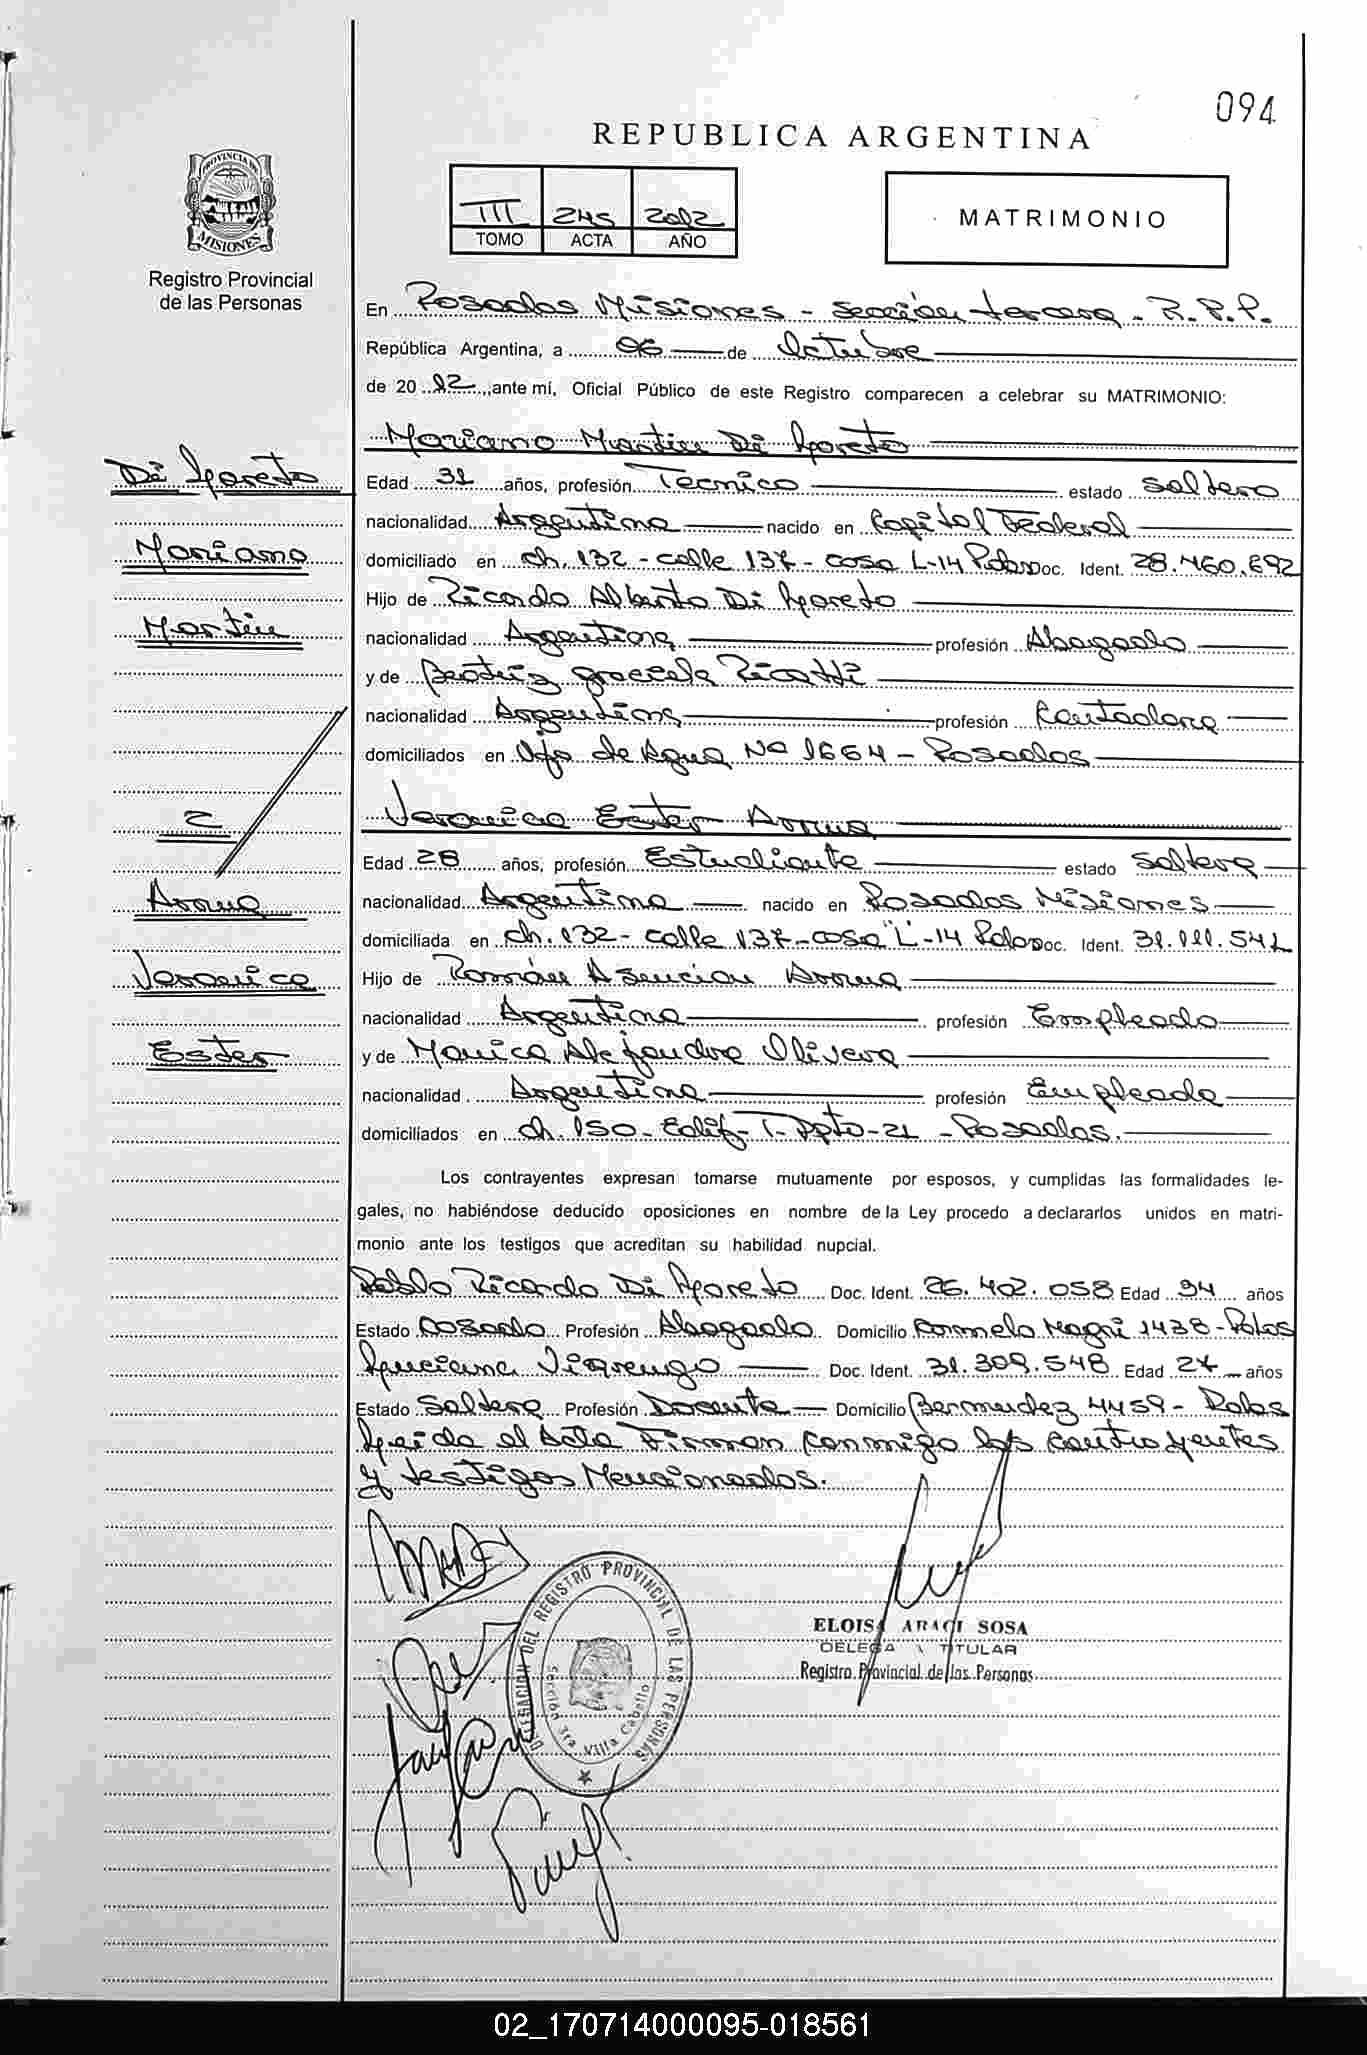 094
REPUBLICA ARGENTINA
PROVINCIA DE
MISIONES
Registro Provincial
de las Personas
III 245 2012
TOMO ACTA AÑO
MATRIMONIO
En Posadas Misiones - sección tercera - R.P.P.
República Argentina, a 06 de Octubre
de 20 12, ante mí, Oficial Público de este Registro comparecen a celebrar su MATRIMONIO:
Mariano Martin Di Loreto
Di Loreto
Edad 31 años, profesión Tecnico estado soltero
nacionalidad Argentina nacido en Capital Federal
Mariano
domiciliado en ch. 132 - calle 137 - casa L-14 Pdas Doc. Ident. 28.460.692
Hijo de Ricardo Alberto Di Loreto
Martin
nacionalidad Argentina profesión Abogado
y de Beatriz graciela Ricatti
nacionalidad Argentina profesión Contadora
domiciliados en Ojo de Agua Nº 1664 - Posadas
Veronica Ester Arrua
Edad 28 años, profesión Estudiante estado soltera
Arrua
nacionalidad Argentina nacido en Posadas Misiones
domiciliada en ch. 132 - calle 137 - casa "L"-14 Pdas Doc. Ident. 31.111.541
Veronica
Hijo de Román Asuncion Arrua
nacionalidad Argentina profesión Empleado
Ester
y de Monica Alejandra Olivera
nacionalidad Argentina profesión Empleada
domiciliados en ch. 150 - Edif - T - Dpto - 21 - Posadas.
Los contrayentes expresan tomarse mutuamente por esposos, y cumplidas las formalidades le-
gales, no habiéndose deducido oposiciones en nombre de la Ley procedo a declararlos unidos en matri-
monio ante los testigos que acreditan su habilidad nupcial.
Pablo Ricardo Di Loreto Doc. Ident. 26.402.058 Edad 34 años
Estado casado Profesión Abogado Domicilio Carmelo Magri 1438 - Pdas
Luciana Doc. Ident. 31.309.548 Edad 27 años
Estado Soltera Profesión Docente Domicilio Bermudez 4459 - Pdas
Leida el Acta Firman conmigo los contrayentes
y testigos Mencionados.
DELEGACION DEL REGISTRO PROVINCIAL DE LAS PERSONAS
Sección 3ra Villa Cabello
ELOISA ARACI SOSA
DELEGADA TITULAR
Registro Provincial de las Personas
02_170714000095-018561